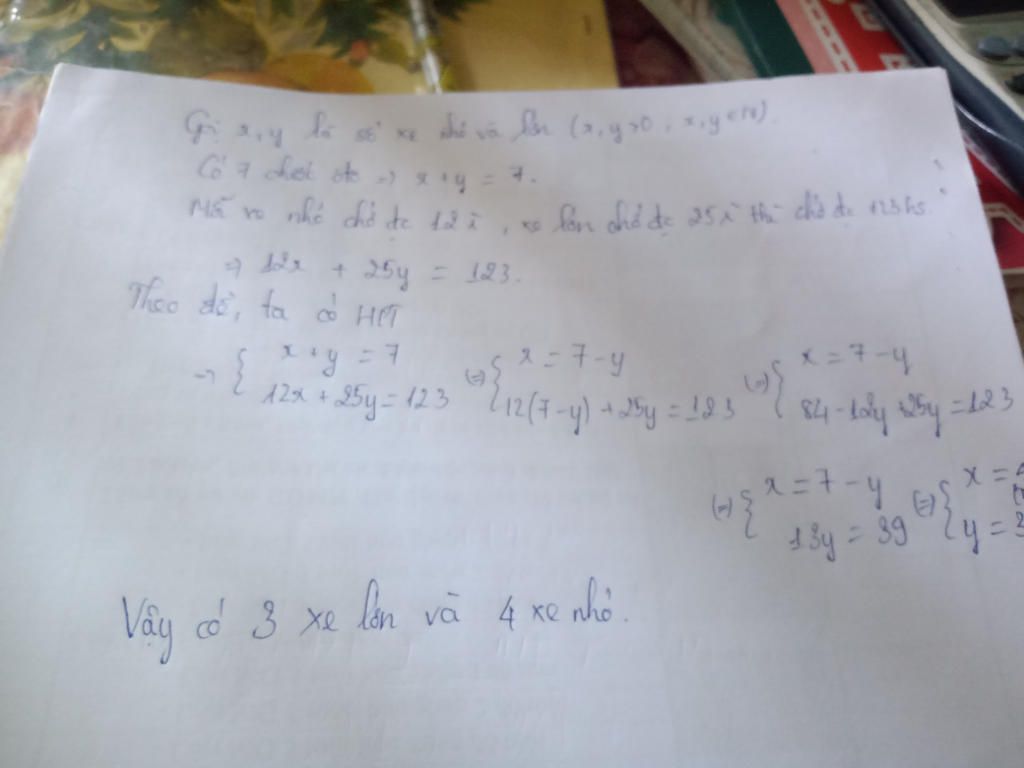 Gọi x, y là số xe nhỏ và lớn (x, y > 0; x, y ∈ N).
Có 7 chiếc oto → x + y = 7.
Mỗi xe nhỏ chở đc 12, xe lớn chở đc 25 thì chở đc 123 hs.
⇒ 12x + 25y = 123.
Theo đề, ta có HPT
→ { x + y = 7 (=) { x = 7 - y (=) { x = 7 - y
12x + 25y = 123 12(7 - y) + 25y = 123 84 - 12y + 25y = 123
(=) { x = 7 - y (=) { x =
13y = 39 y = 3
Vậy có 3 xe lớn và 4 xe nhỏ.